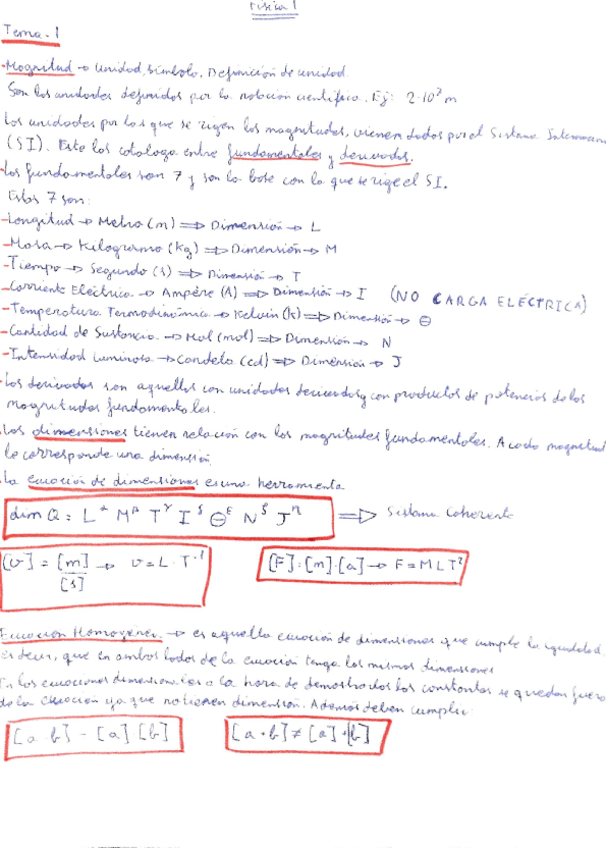 Física 1
Tema-1
-Magnitud → unidad, símbolo. Definición de unidad.
Son las unidades definidas por la notación científica. Ej: 2·10³ m
Las unidades por las que se rigen las magnitudes, vienen dadas por el Sistema Internacion
(SI). Este los cataloga entre fundamentales y derivadas.
-Las fundamentales son 7 y son la base con la que se rige el SI.
Estas 7 son:
-Longitud → Metro (m) ⇒ Dimensión → L
-Masa → Kilogramo (kg) ⇒ Dimensión → M
-Tiempo → Segundo (s) ⇒ Dimensión → T
-Corriente Eléctrica → Ampère (A) ⇒ Dimensión → I (NO CARGA ELÉCTRICA)
-Temperatura Termodinámica → Kelvin (k) ⇒ Dimensión → Θ
-Cantidad de Sustancia → Mol (mol) ⇒ Dimensión → N
-Intensidad Luminosa → Candela (cd) ⇒ Dimensión → J
-Las derivadas son aquellas con unidades derivadas y con productos de potencias de las
magnitudes fundamentales.
-Las dimensiones tienen relación con las magnitudes fundamentales. A cada magnitud
le corresponde una dimensión.
-La ecuación de dimensiones es una herramienta
dim Q = L^α M^β T^γ I^δ Θ^ε N^ζ J^η ⇒ Sistema Coherente
[v] = [m]/[s] → v = L·T⁻¹ [F]=[m]·[a] → F = MLT²
Ecuación Homogénea → es aquella ecuación de dimensiones que cumple la igualdad,
es decir, que en ambos lados de la ecuación tenga las mismas dimensiones
En las ecuaciones dimensionales a la hora de demostrarlas las constantes se quedan fuera
de la ecuación ya que no tienen dimensión. Además deben cumplir:
[a b] = [a] [b] [a+b] ≠ [a]+[b]